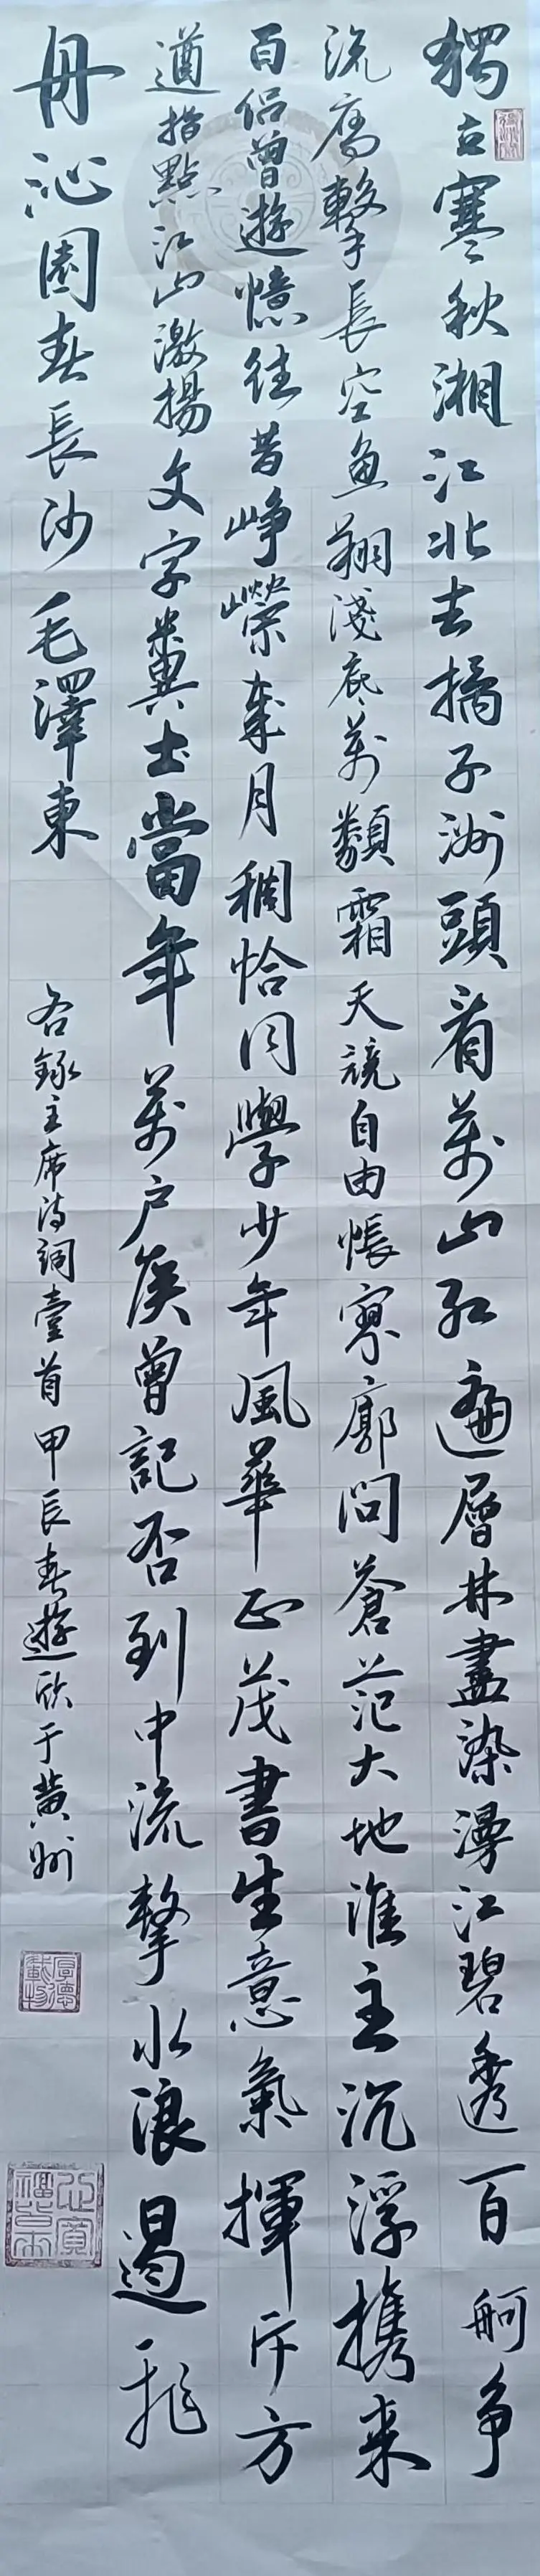 獨立寒秋湘江北去橘子洲頭看萬山紅遍層林盡染漫江碧透百舸爭
流鷹擊長空魚翔淺底萬類霜天競自由悵寥廓問蒼茫大地誰主沉浮攜来
百侣曾遊憶往昔崢嶸歲月稠恰同學少年風華正茂書生意氣揮斥方
遒指點江山激揚文字糞土當年萬户侯曾記否到中流擊水浪遏飛
舟沁園春長沙毛澤東
右錄主席詩詞壹首甲辰春遊欣于黄州
厚德載物